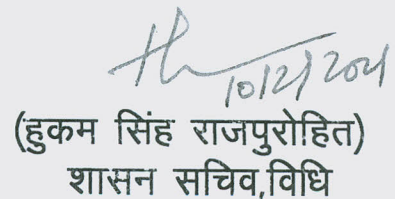 10/2/2021
(हुकम सिंह राजपुरोहित)
शासन सचिव,विधि